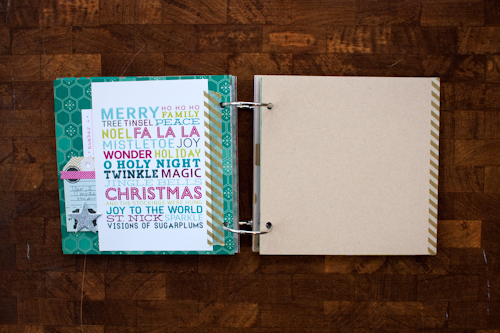 MERRY HO HO HO
FAMILY
TREE TINSEL PEACE
NOEL FA LA LA
MISTLETOE JOY
WONDER HOLIDAY
O HOLY NIGHT
TWINKLE MAGIC
JINGLE BELLS
CHRISTMAS
JOY TO THE WORLD
ST. NICK SPARKLE
VISIONS OF SUGARPLUMS